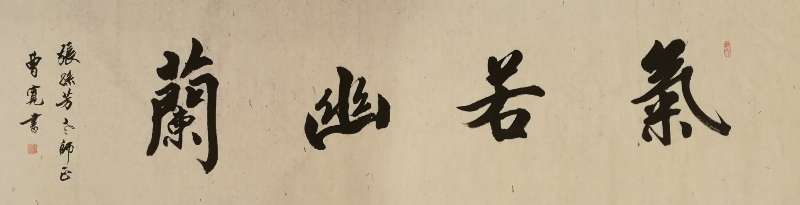 氣若幽蘭
張孫芳老師正
曹寬書